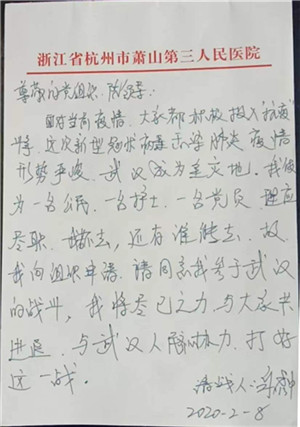 浙江省杭州市萧山第三人民医院
尊敬的党组织、院领导：
面对当前疫情，大家都积极投入"抗疫"
中，这次新型冠状病毒感染肺炎疫情
形势严峻，武汉成为重灾地。我作
为一名公民、一名护士、一名党员，理应
尽职，我不去，还有谁能去，故
我向组织申请，请同意我参于武汉
的战斗，我将尽己之力，与大家共
进退，与武汉人民齐心协力，打好
这一战。
请战人：
2020-2-8